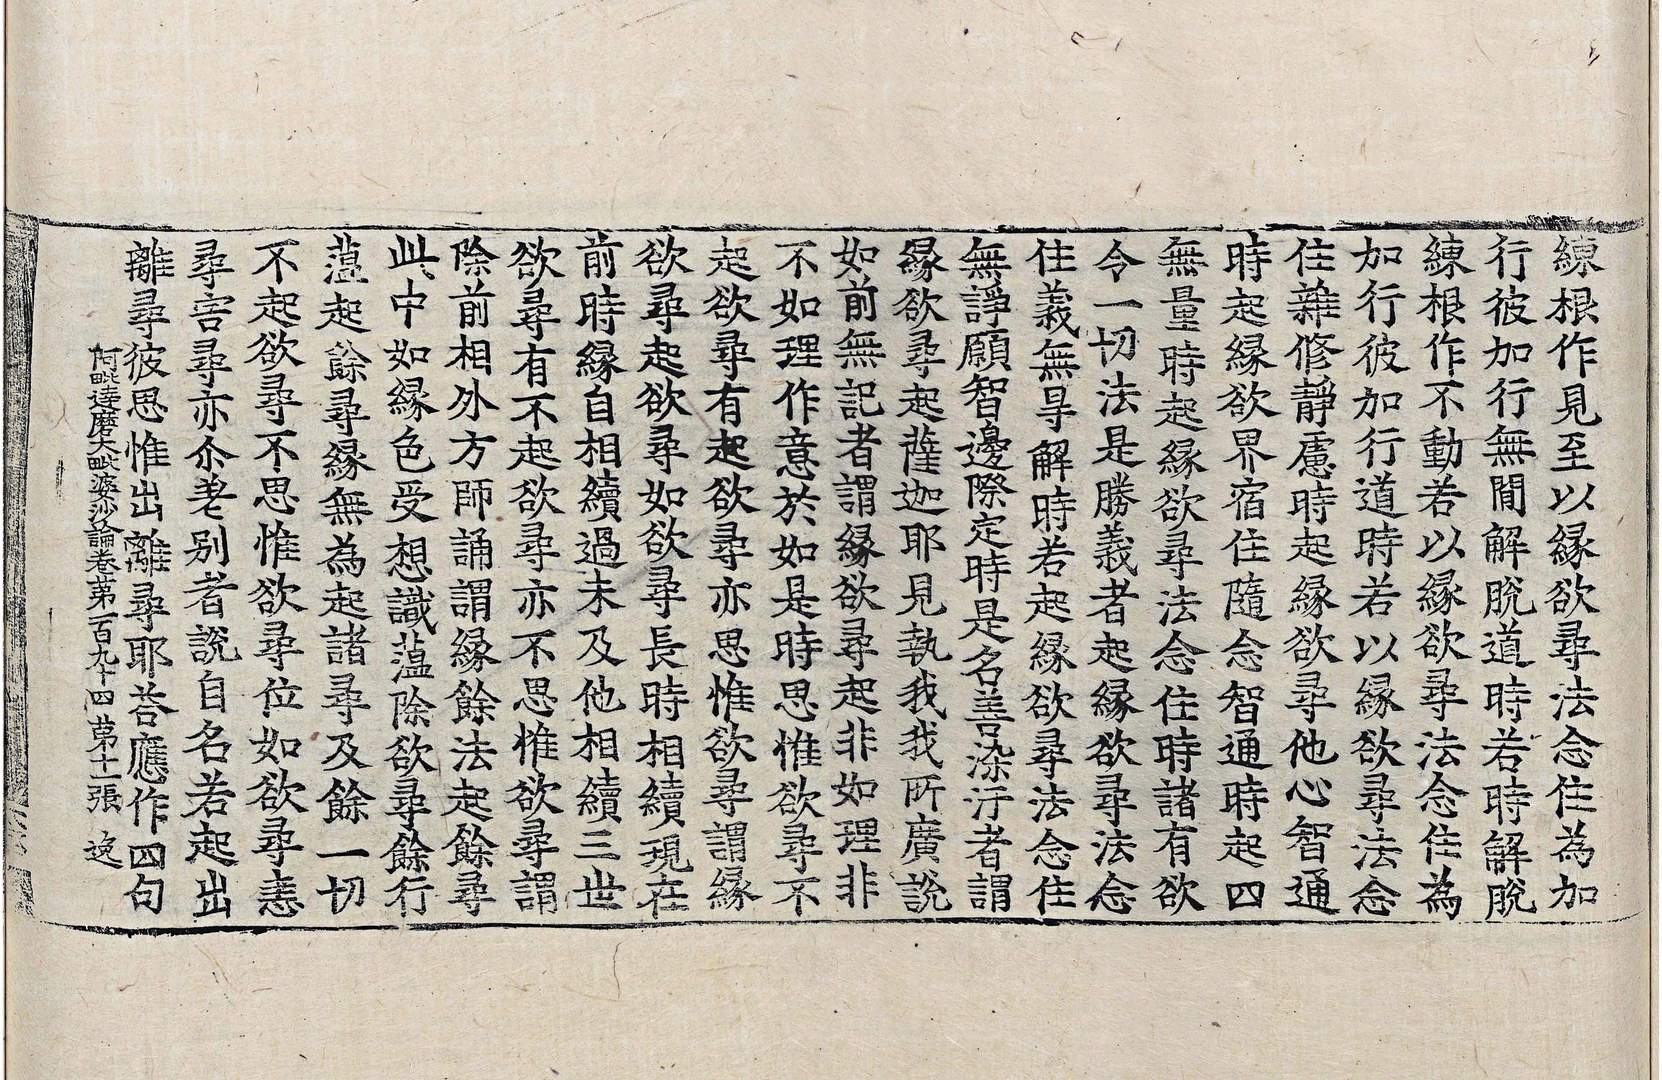 練根作見至以縁欲尋法念住為加
行彼加行無間解脫道時若時解脫
練根作不動若以縁欲尋法念住為
加行彼加行道時若以縁欲尋法念
住雜修靜慮時起縁欲尋他心智通
時起縁欲界宿住隨念智通時起四
無量時起縁欲尋法念住時諸有欲
令一切法是勝義者起縁欲尋法念
住義無㝵解時若起縁欲尋法念住
無諍願智邊際定時是名善染汙者謂
縁欲尋起薩迦耶見執我我所廣說
如前無記者謂縁欲尋起非如理非
不如理作意於如是時思惟欲尋不
起欲尋有起欲尋亦思惟欲尋謂縁
欲尋起欲尋如欲尋長時相續現在
前時縁自相續過未及他相續三世
欲尋有不起欲尋亦不思惟欲尋謂
除前相外方師誦謂縁餘法起餘尋
此中如縁色受想識薀除欲尋餘行
薀起餘尋縁無為起諸尋及餘一切
不起欲尋不思惟欲尋位如欲尋恚
尋害尋亦尒差別者說自名若起出
離尋彼思惟出離尋耶荅應作四句
阿毗達磨大毗婆沙論卷第一百九十四 苐十一張